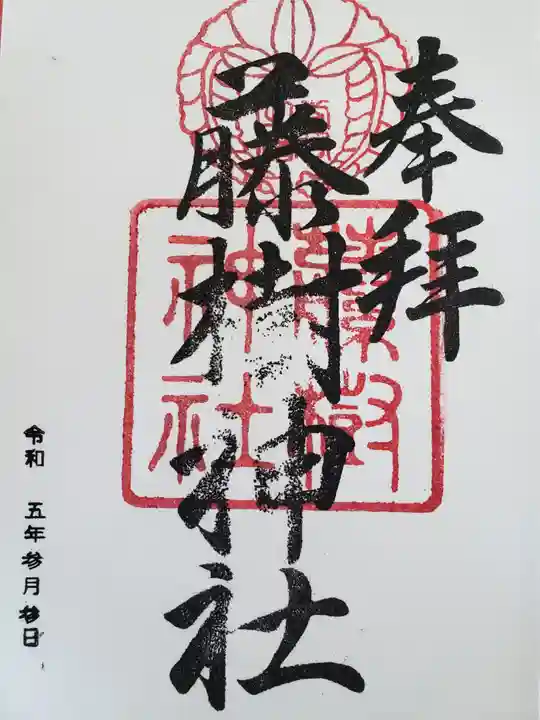 奉拝
藤樹神社
藤樹
神社
令和 五年参月参日